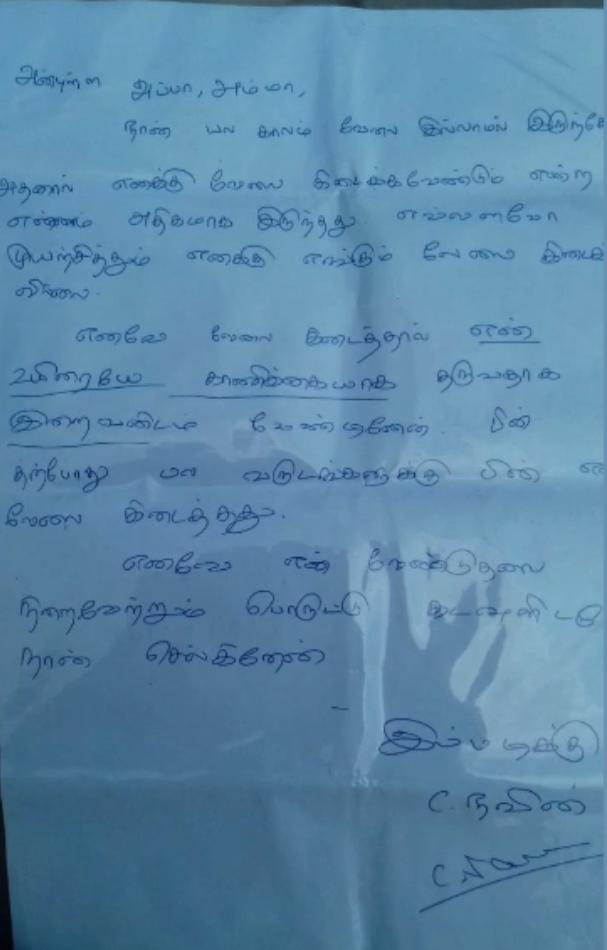 அன்புள்ள அப்பா, அம்மா,
நான் பல காலம் வேலை இல்லாமல் இருந்தே
அதனால் எனக்கு வேலை கிடைக்கவேண்டும் என்ற
எண்ணம் அதிகமாக இருந்தது. எவ்வளவோ
முயற்சித்தும் எனக்கு எங்கும் வேலை கிடைக்
வில்லை.
எனவே வேலை கிடைத்தால் என்
உயிரையே காணிக்கையாக தருவதாக
இறைவனிடம் வேண்டினேன். பின்
தற்போது பல வருடங்களுக்கு பின்
வேலை கிடைத்தது.
எனவே என் வேண்டுதலை
நிறைவேற்றும் பொருட்டு கடவுளிட
நான் செல்கிறேன்
இப்படிக்கு
C. நவின்